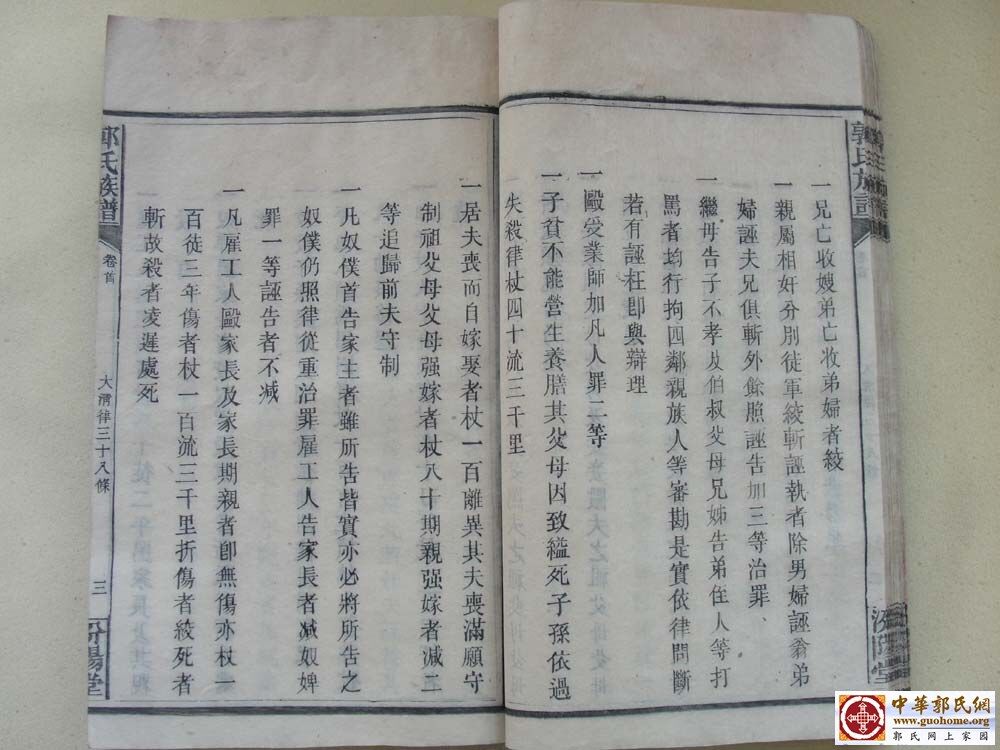 郭氏族譜
一兄亡收嫂弟亡收弟婦者絞
一親屬相奸分別徒軍絞斬誣執者除男婦誣翁弟
婦誣夫兄俱斬外餘照誣告加三等治罪、
一繼母告子不孝及伯叔父母兄姊告弟侄人等打
罵者均行拘四鄰親族人等審勘是實依律問斷
若有誣枉卽與辯理
一毆受業師加凡人罪二等
一子貧不能營生養膳其父母因致縊死子孫依過
失殺律杖四十流三千里
一居夫喪而自嫁娶者杖一百離異其夫喪滿願守
制祖父母父母强嫁者杖八十期親强嫁者减二
等追歸前夫守制
一凡奴僕首告家主者雖所告皆實亦必將所告之
奴僕仍照律從重治罪雇工人告家長者减奴婢
罪一等誣告者不减
一凡雇工人毆家長及家長期親者卽無傷亦杖一
百徒三年傷者杖一百流三千里折傷者絞死者
斬故殺者凌遲處死
郭氏族譜
卷首
大清律三十八條
三
汾陽堂
汾陽堂
中華郭氏網
www.guohome.org
郭氏網上家園